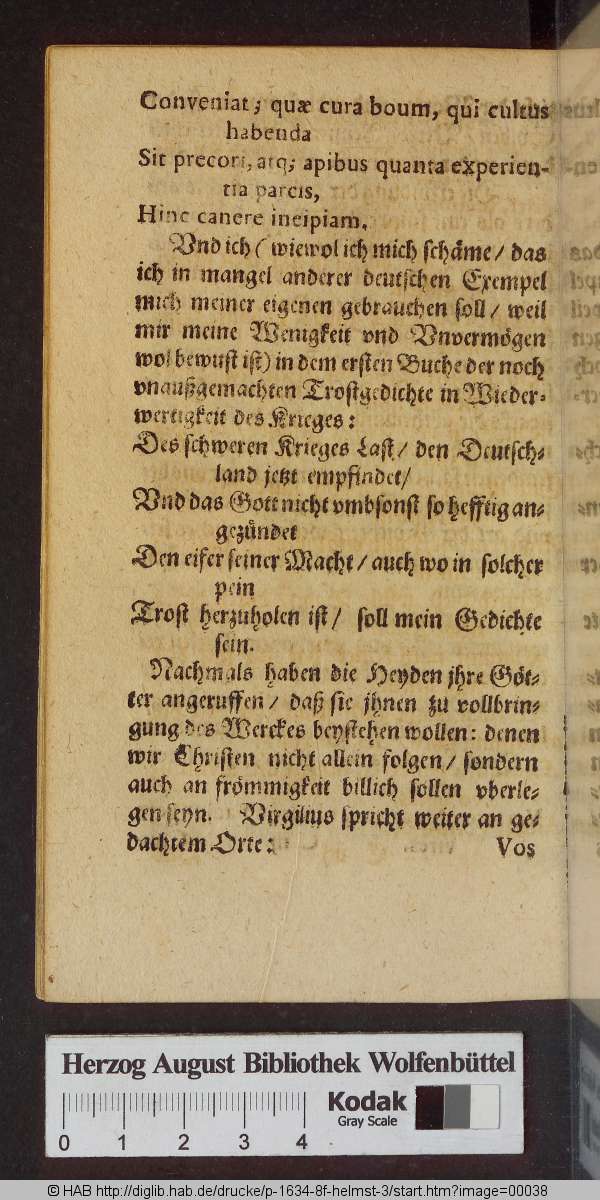 Conveniat; quæ cura boum, qui cultus
habenda
Sit precori, atq; apibus quanta experien-
tia parcis,
Hinc canere incipiam,
Vnd ich (wiewol ich mich schäme / das
ich in mangel anderer deutschen Exempel
mich meiner eigenen gebrauchen soll / weil
mir meine Wenigkeit vnd Vnvermögen
wol bewust ist) in dem ersten Buche der noch
vnaußgemachten Trostgedichte in Wieder-
wertigkeit des Krieges:
Des schweren Krieges Last / den Deutsch-
land jetzt empfindet /
Vnd das Gott nicht vmbsonst so hefftig an-
gezündet
Den eifer seiner Macht / auch wo in solcher
pein
Trost herzuholen ist / soll mein Gedichte
sein.
Nachmals haben die Heyden jhre Göt-
ter angeruffen / daß sie jhnen zu vollbrin-
gung des Werckes beystehen wollen: denen
wir Christen nicht allein folgen / sondern
auch an frömmigkeit billich sollen vberle-
gen seyn. Virgilius spricht weiter an ge-
dachtem Orte:
Vos
Herzog August Bibliothek Wolfenbüttel
0 1 2 3 4
Kodak
Gray Scale
© HAB http://diglib.hab.de/drucke/p-1634-8f-helmst-3/start.htm?image=00038